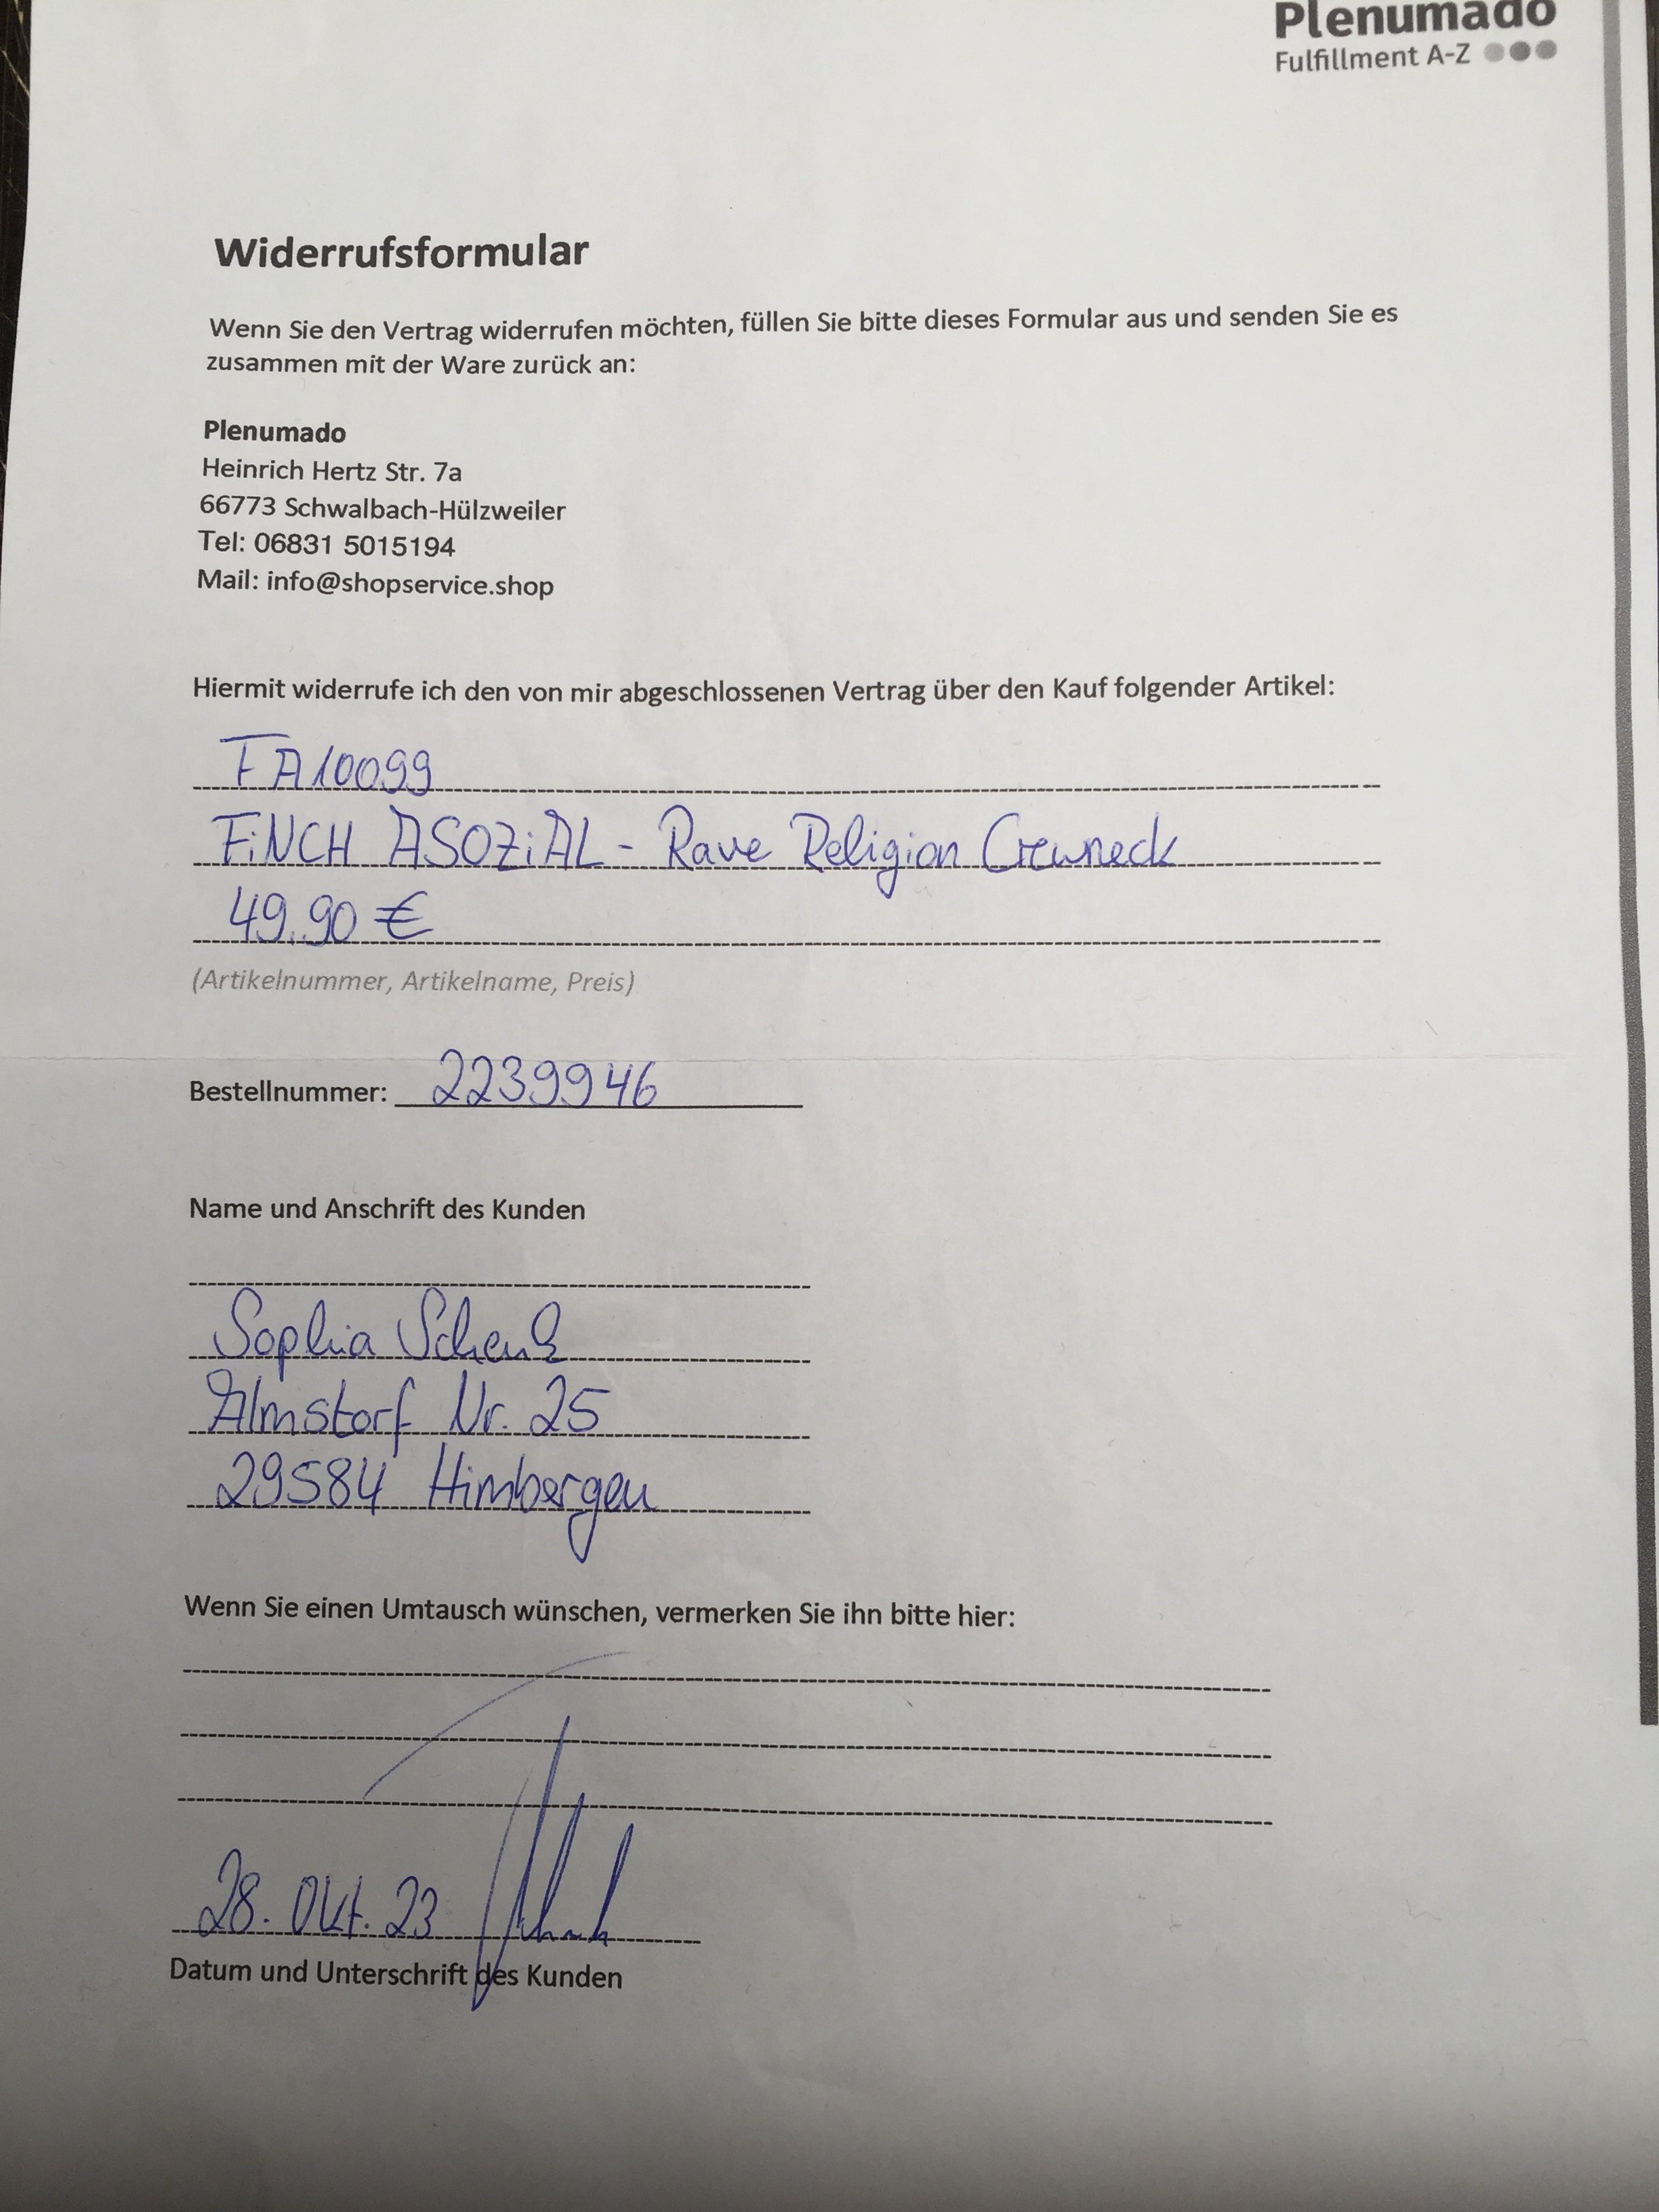 Plenumado
Fulfillment A-Z
Widerrufsformular
Wenn Sie den Vertrag widerrufen möchten, füllen Sie bitte dieses Formular aus und senden Sie es
zusammen mit der Ware zurück an:
Plenumado
Heinrich Hertz Str. 7a
66773 Schwalbach-Hülzweiler
Tel: 06831 5015194
Mail: info@shopservice.shop
Hiermit widerrufe ich den von mir abgeschlossenen Vertrag über den Kauf folgender Artikel:
FA10099
FiNCH ASOZiAL - Rave Religion Crewneck
49,90 €
(Artikelnummer, Artikelname, Preis)
Bestellnummer: 2239946
Name und Anschrift des Kunden
Sophia Schenk
Almstorf Nr. 25
29584 Himbergen
Wenn Sie einen Umtausch wünschen, vermerken Sie ihn bitte hier:
28. Okt. 23
Datum und Unterschrift des Kunden